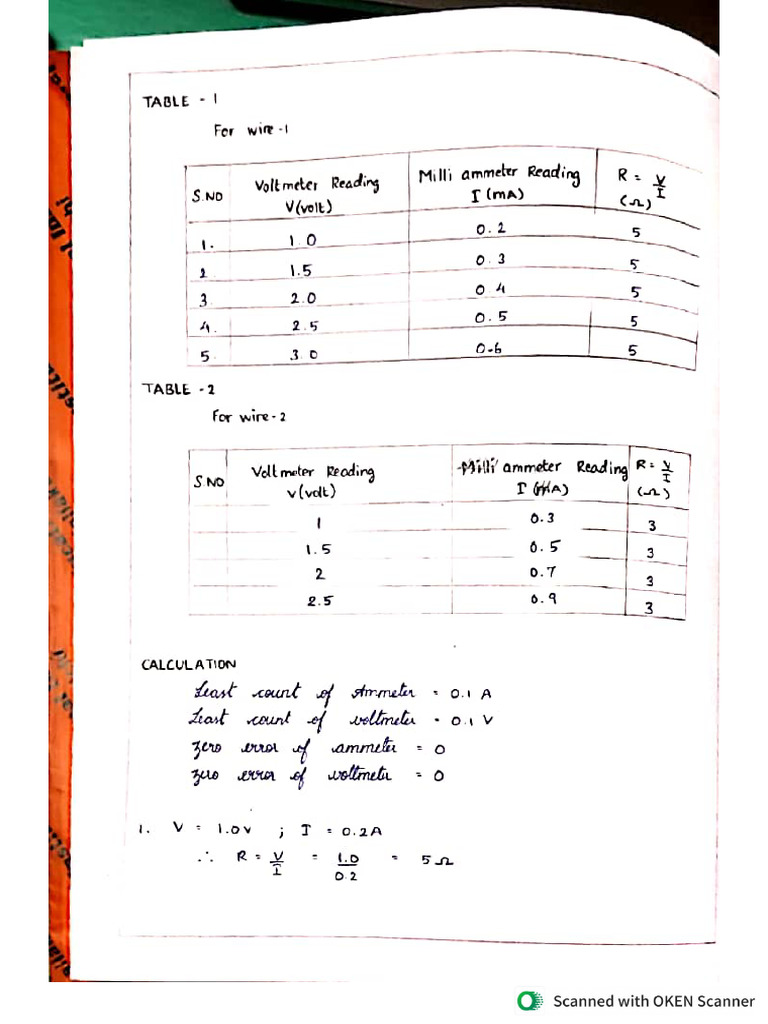 TABLE - 1
For wire-1
S.NO Voltmeter Reading V(volt) Milli ammeter Reading I (mA) R = V/I (Ω)
1. 1.0 0.2 5
2. 1.5 0.3 5
3. 2.0 0.4 5
4. 2.5 0.5 5
5. 3.0 0.6 5
TABLE - 2
For wire-2
S.NO Voltmeter Reading V(volt) Milli ammeter Reading I (mA) R = V/I (Ω)
1 0.3 3
1.5 0.5 3
2 0.7 3
2.5 0.9 3
CALCULATION
Least count of Ammeter = 0.1 A
Least count of voltmeter = 0.1 V
zero error of ammeter = 0
zero error of voltmeter = 0
1. V = 1.0V ; I = 0.2A
∴ R = V/I = 1.0/0.2 = 5Ω
Scanned with OKEN Scanner